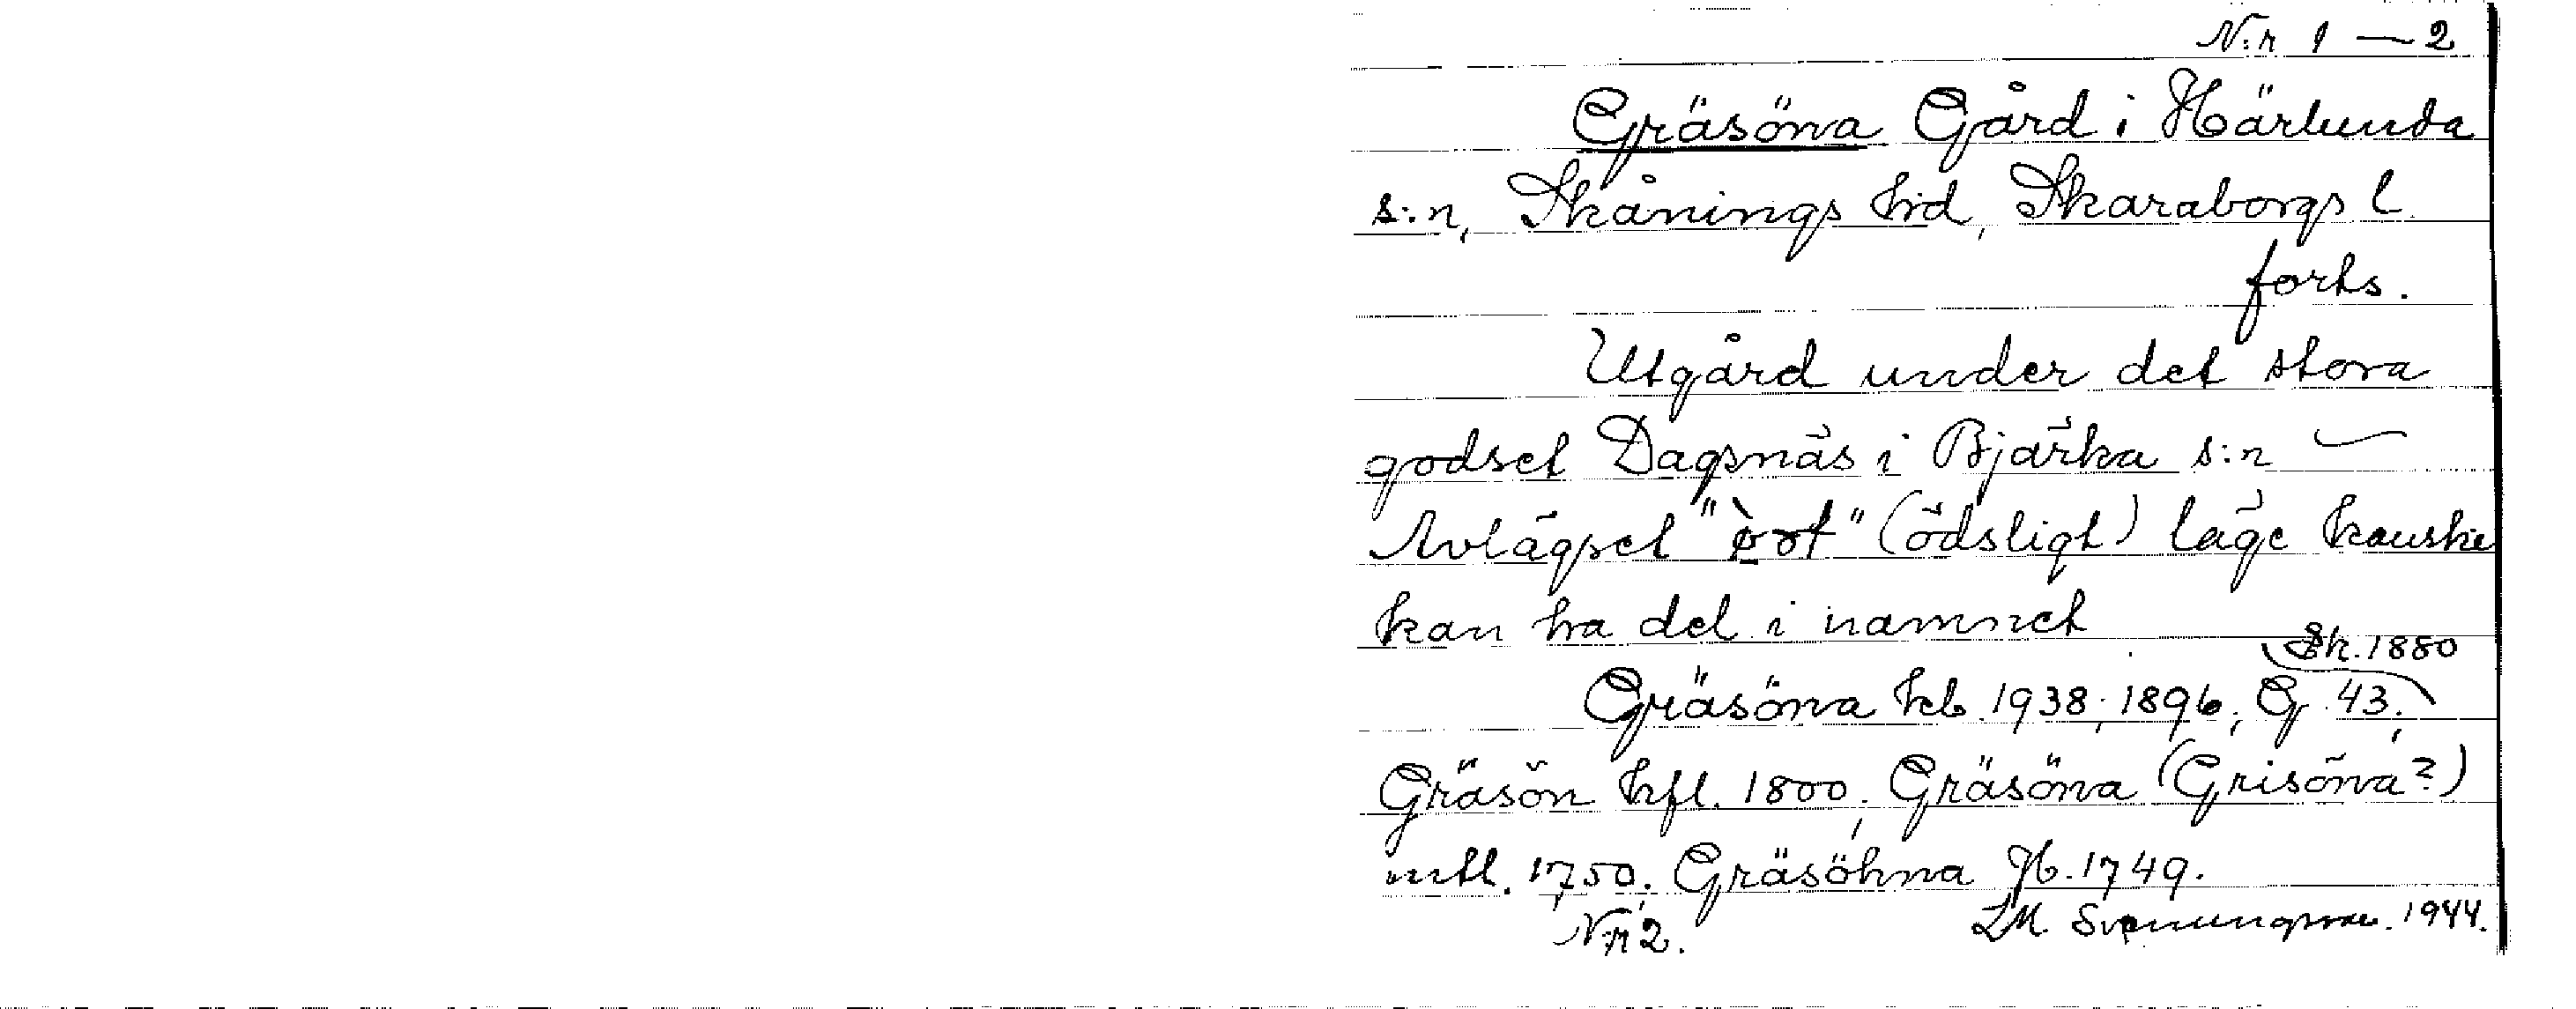 N:r 1 — 2
Gräsöna Gård i Härlunda
s:n, Skånings hd, Skaraborgs l.
forts.
Utgård under det stora
godset Dagsnäs i Bjärka s:n —
Avlägset "òt" (ödsligt) läge kanske
kan ha del i namnet
Sk. 1880
Gräsöna kb 1938; 1896; G 43;
Gräsön hfl. 1800; Gräsöna (Grisöna?)
mtl. 1750; Gräsöhna Jb. 1749.
N:r 2. LM Svenungsson. 1944.